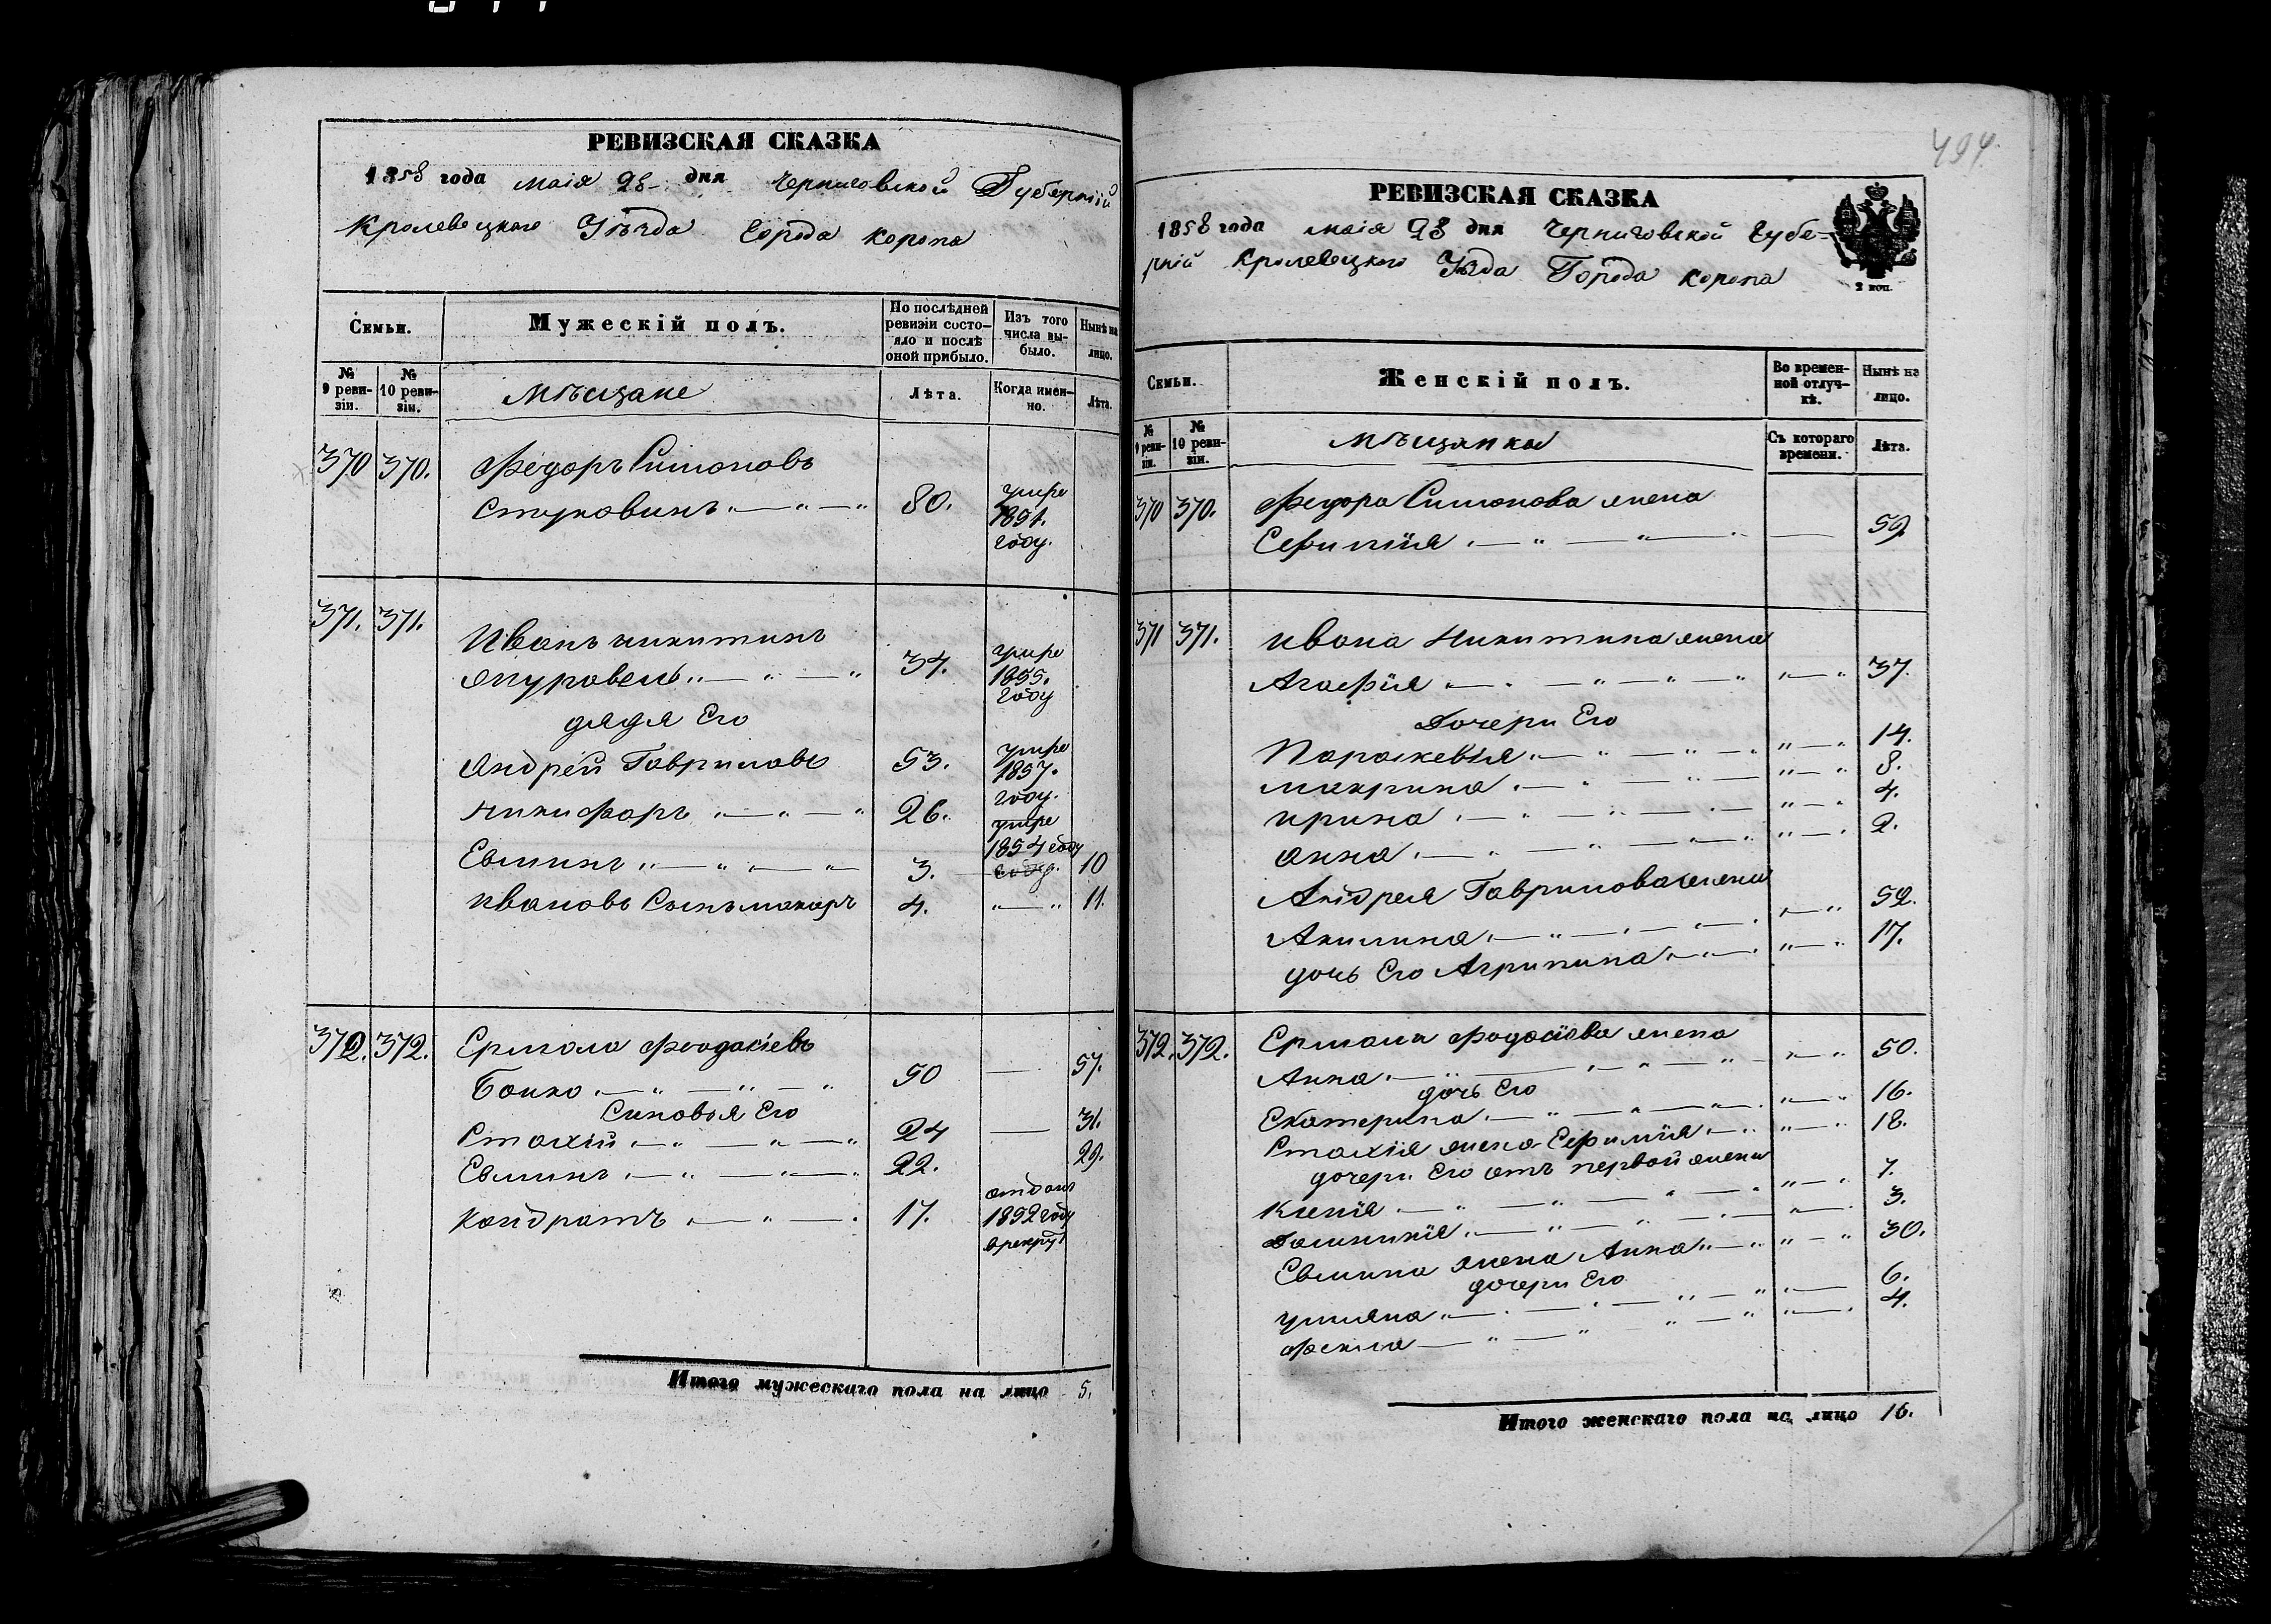 РЕВИЗСКАЯ СКАЗКА
1858 года маія 28 дня Черниговской Губерніи
Кролевецкаго Уѣзда Города Коропа
Семьи.
Мужескій полъ.
По послѣдней ревизіи состояло и послѣ оной прибыло.
Изъ того числа выбыло.
Нынѣ на лицо.
№ 9 ревизіи.
№ 10 ревизіи.
Мѣщане
Лѣта.
Когда именно.
Лѣта.
370 370. Федоръ Симоновъ
80. умре 1851. году.
371. 371. Иванъ Никитинъ
Журавель 34. умре 1855. году
дядя Его
Андрей Гавриловъ 53. умре 1857. году.
Никифоръ 26. умре 1854 году
Евминъ 3. 10
Ивановъ Сынъ Макаръ 4. 11.
372. 372. Ермола Феодосіевъ
Бойко 50 57.
Синовья Его
Стахій 24 31.
Евминъ 22. 29.
Кондратъ 17. отданъ 1852 году в рекрут
Итого мужескаго пола на лицо 5.
494.
РЕВИЗСКАЯ СКАЗКА
1858 года маія 28 дня Черниговской Губе-
рніи Кролевецкаго Уѣзда Города Коропа
2 коп.
Семьи.
Женскій полъ.
Во временной отлучкѣ.
Нынѣ на лицо.
№ 9 ревизіи.
№ 10 ревизіи.
Мѣщанки
Съ котораго времени.
Лѣта.
370 370. Федора Симонова жена
Ефимія 59
371 371. Ивана Никитина жена
Агафія 37.
Дочери Его
Параскевія 14.
Макрина 8.
Ирина 4.
Анна 2.
Андрея Гаврилова жена
Акилина 52.
дочь Его Агрипина 17.
372. 372. Ермолы Фодосіева жена
Анна 50.
дочь Его
Екатерина 16.
Стахія жена Ефимія 18.
дочери Его отъ первой жены
Ксенія 7.
Домникія 3.
Евмина жена Анна 30.
дочери Его
Улияна 6.
Фекла 4.
Итого женскаго пола на лицо 16.